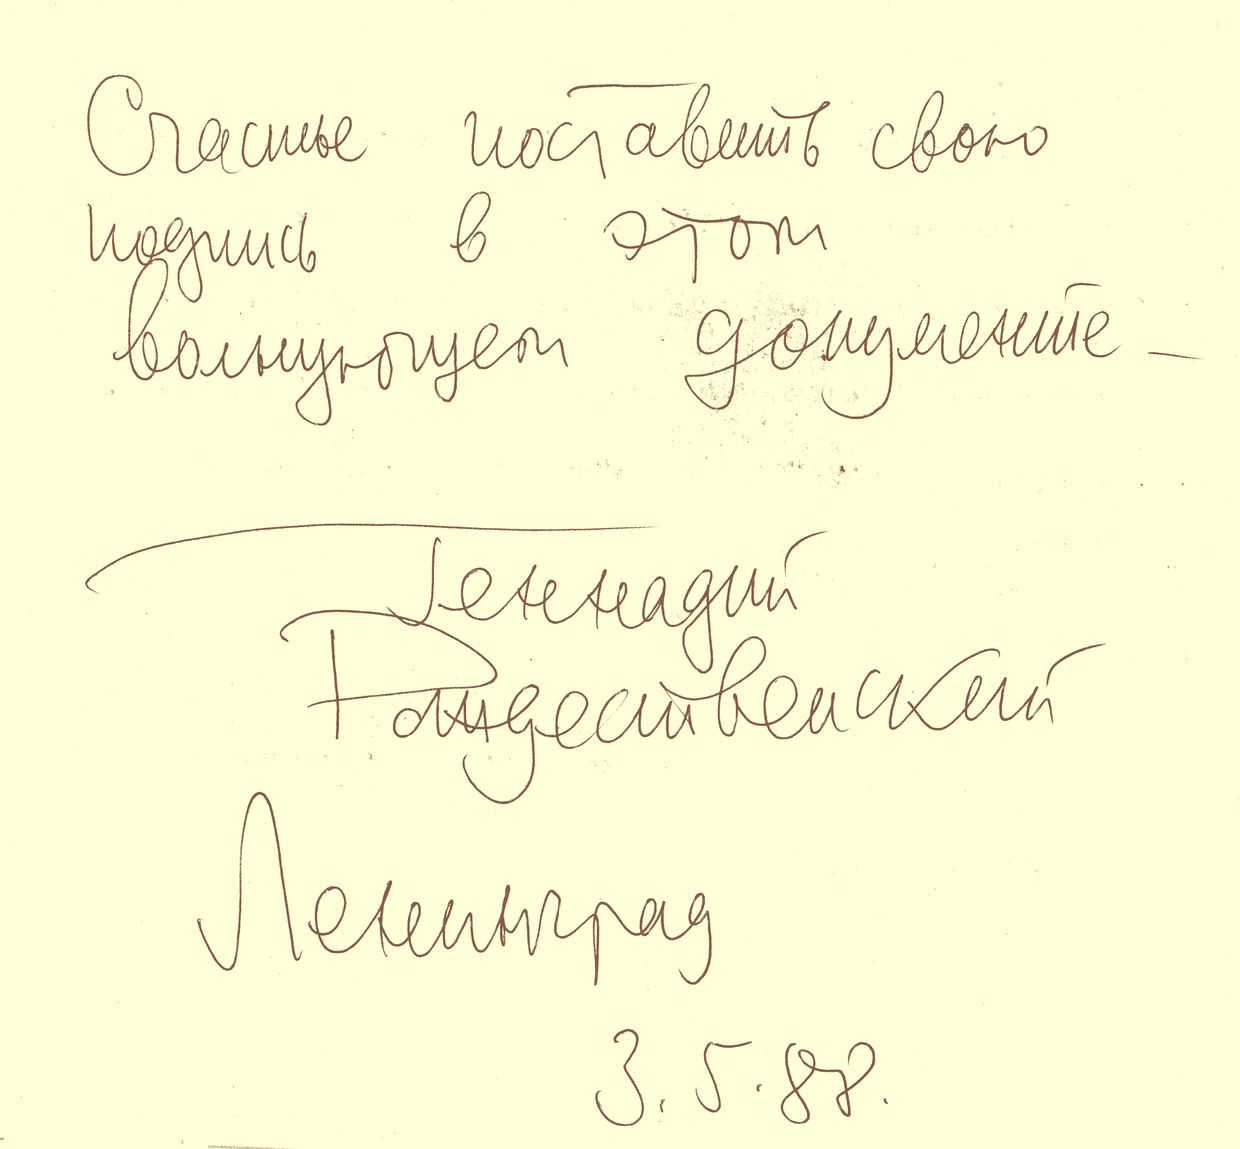 Счастье поставить свою
подпись в этом
волнующем документе –
Геннадий
Рождественский
Ленинград
3.5.88.